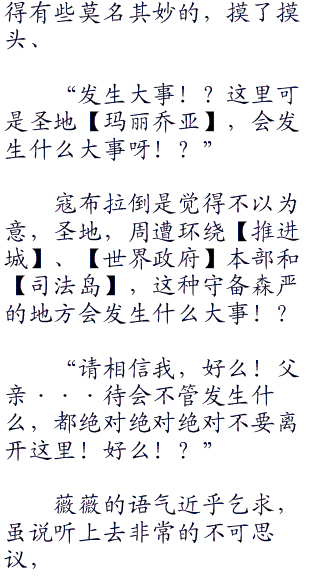 得有些莫名其妙的，摸了摸
头、
“发生大事！？这里可
是圣地【玛丽乔亚】，会发
生什么大事呀！？”
寇布拉倒是觉得不以为
意，圣地，周遭环绕【推进
城】、【世界政府】本部和
【司法岛】，这种守备森严
的地方会发生什么大事！？
“请相信我，好么！父
亲···待会不管发生什
么，都绝对绝对绝对不要离
开这里！好么！？”
薇薇的语气近乎乞求，
虽说听上去非常的不可思
议，